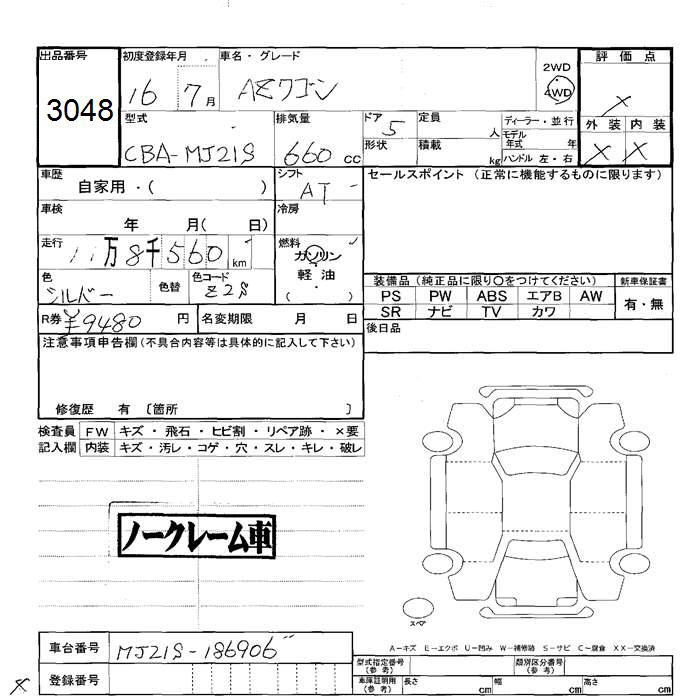 出品番号 初度登録年月 車名・グレード 2WD 4WD 評価点
3048 16 7月 AZワゴン X
型式 排気量 ドア 定員 人 ディーラー・並行 外装 内装
CBA-MJ21S 660cc 5 形状 積載 kg モデル年式 年 X X
ハンドル 左・右
車歴 自家用・( ) シフト AT セールスポイント (正常に機能するものに限ります)
車検 年 月( 日) 冷房
走行 11万8千560km 燃料 ガソリン
軽油
( )
色 シルバー 色替 色コード Z2S
装備品 (純正品に限り〇をつけてください) 新車保証書
PS PW ABS エアB AW 有・無
SR ナビ TV カワ
R券 ¥9480円 名変期限 月 日 後日品
注意事項申告欄(不具合内容等は具体的に記入して下さい)
修復歴 有 〔箇所 〕
検査員 FW キズ・飛石・ヒビ割・リペア跡・×要
記入欄 内装 キズ・汚レ・コゲ・穴・スレ・キレ・破レ
ノークレーム車
スペア
A-キズ E-エクボ U-凹み W-補修跡 S-サビ C-腐食 XX-交換済
車台番号 MJ21S-186906
登録番号
型式指定番号(参考) 類別区分番号(参考)
車庫証明用(参考) 長さ cm 幅 cm 高さ cm
X